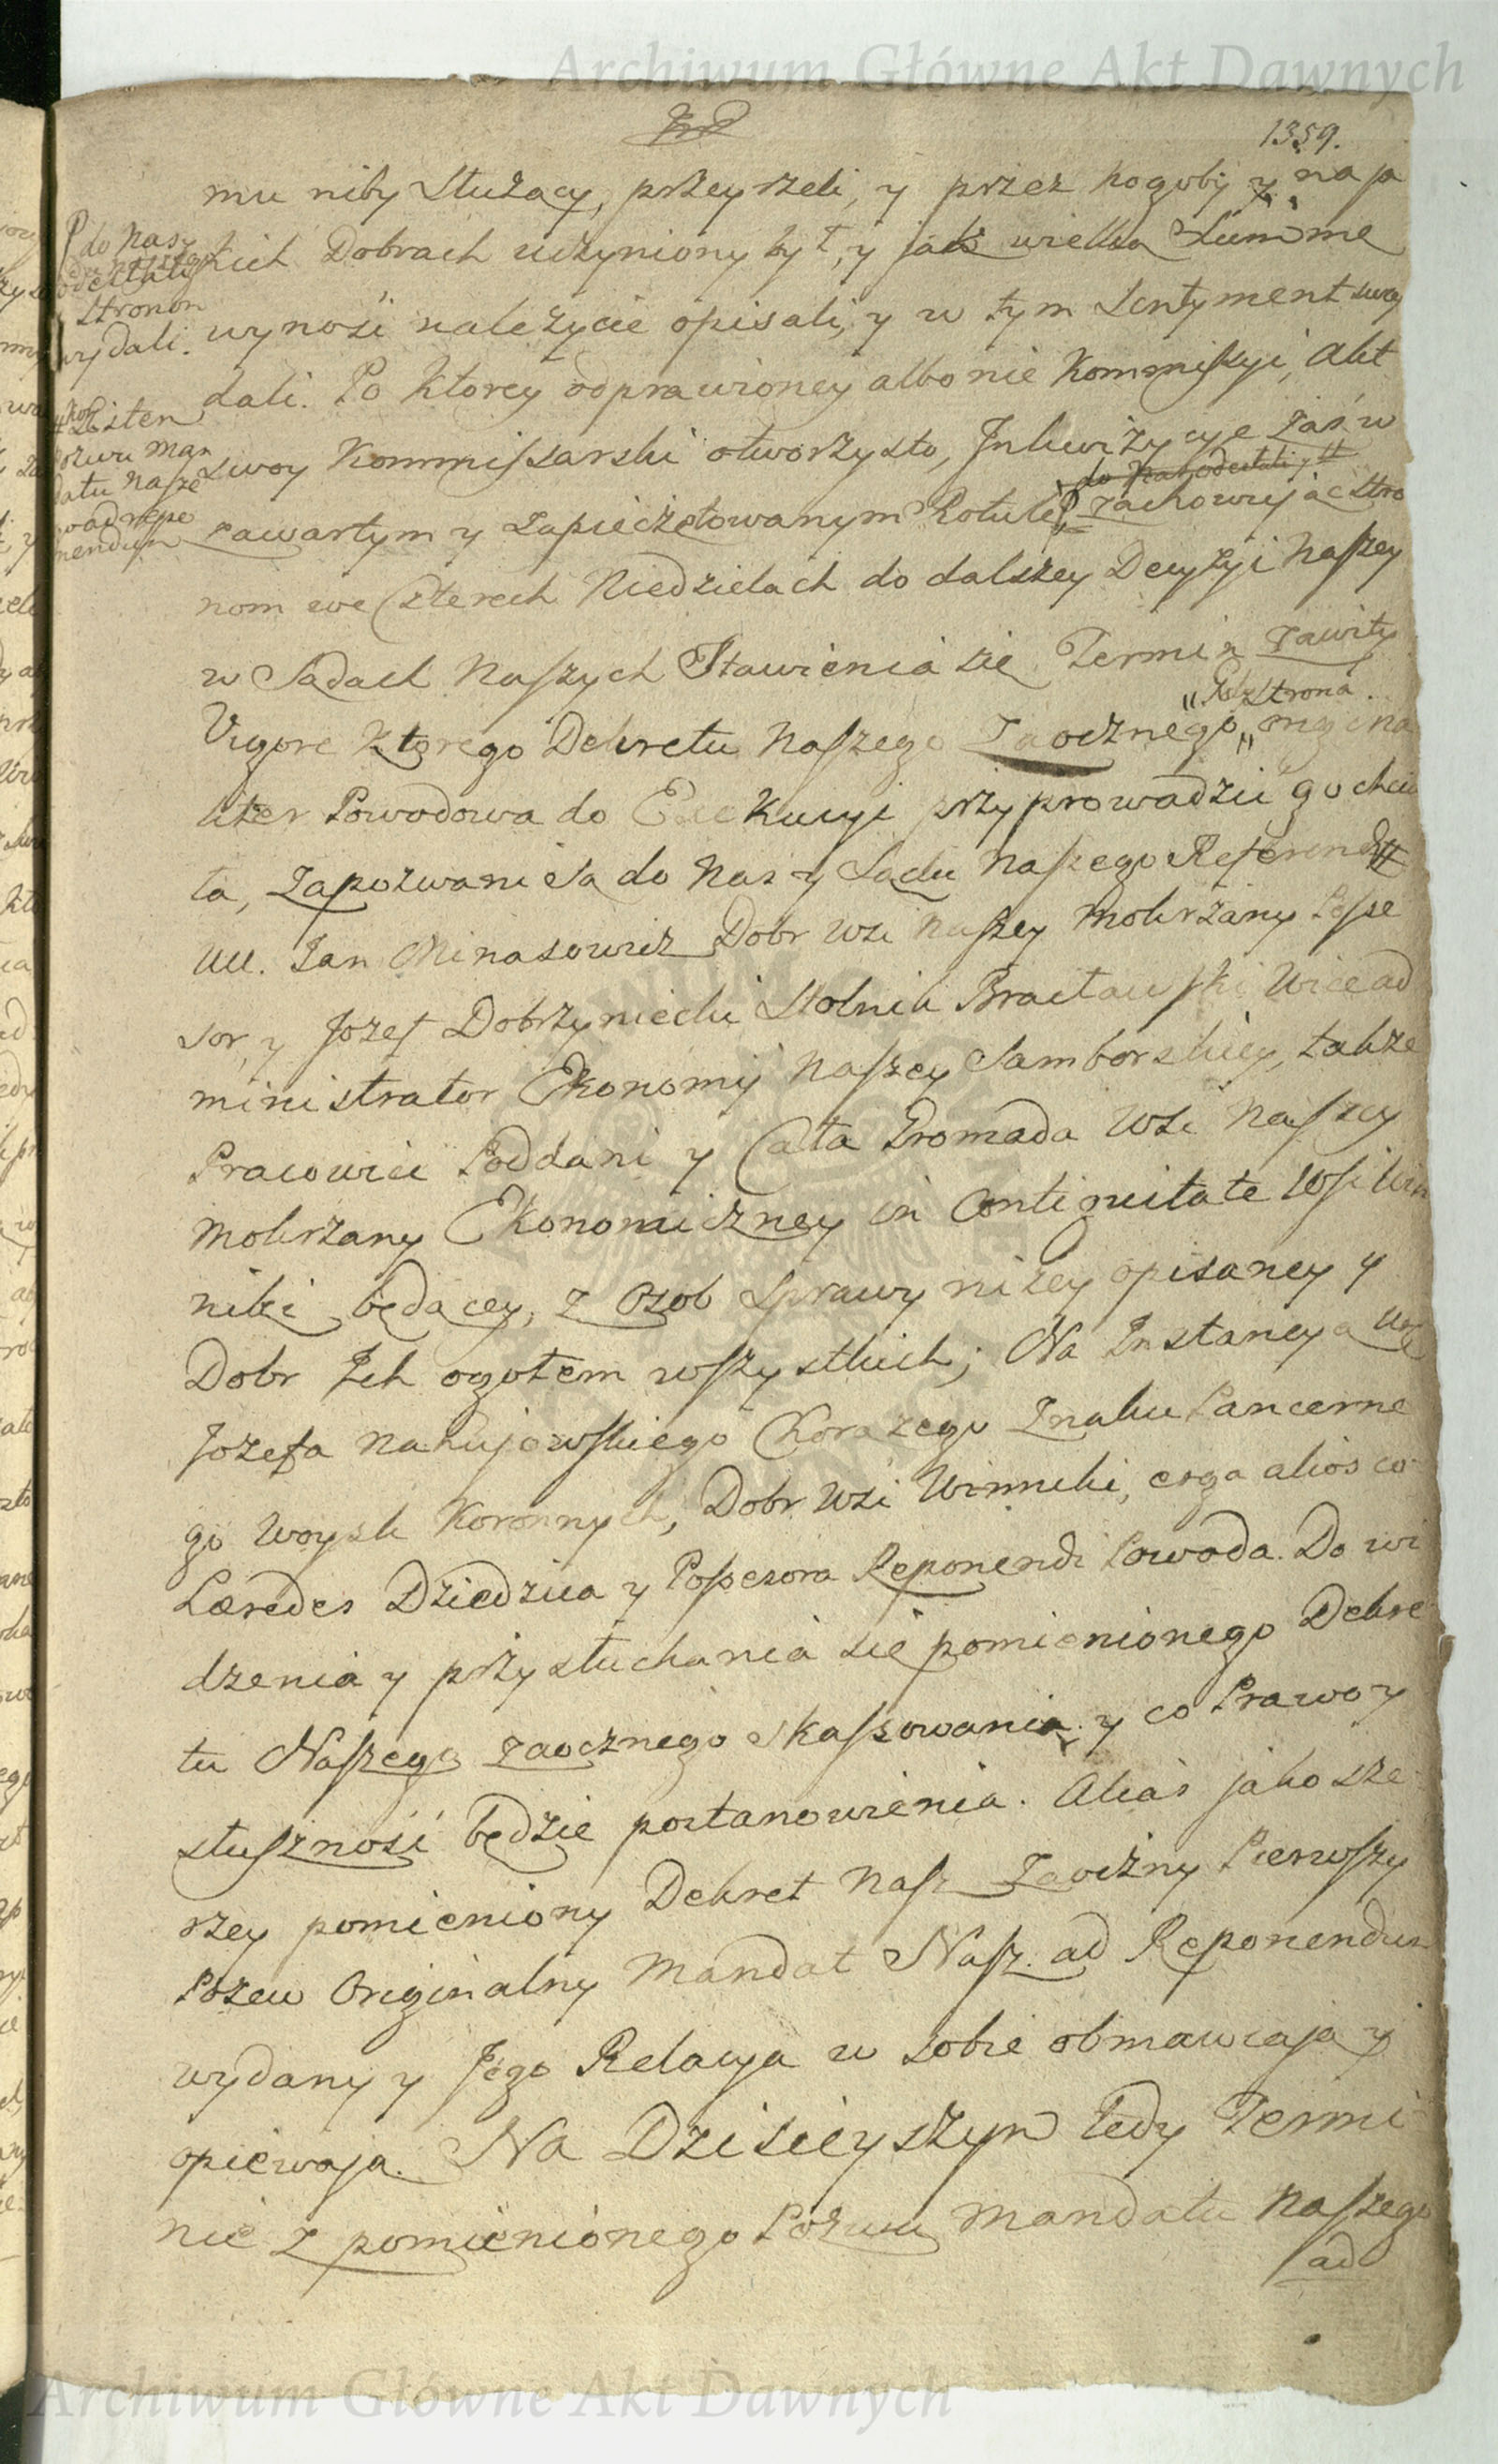 Archiwum Główne Akt Dawnych
1359.
mu niby Służący, przeyrzeli, y przez kogoby y na ja
kich Dobrach uczyniony był, y jak wielką Summę
wynosi należycie opisali, y w tym Sentyment swoy
dali. Po ktorey odprawioney albo nie Kommissyi, Akt
swoy Kommissarski otworzysto, Inkwizycye zaś w
do Nas odesłali y
zawartym y Zapieczętowanym Rotule zachowując Stro
nom we Czterech Niedzielach do dalszey Decyzyi Naszey
w Sądach Naszych Stawienia się Termin zawity
Strona
Vigore ktorego Dekretu Naszego Zaocznego, orygina
liter Powodowa do Exekucyi przyprowadzić go chcia
ła, Zapozwani są do Nas y Sądu Naszego Referend
UU. Jan Minasowicz Dobr Wsi Naszey Mokrzany Posse
sor, y Jozef Dobrzyniecki Stolnik Bracławski Wice ad
ministrator Ekonomij Naszey Samborskiey, także
Pracowici Poddani y Cała Gromada Wsi Naszey
Mokrzany Ekonomiczney in Contiguitate Wsi Win
niki będącey, z Osob Sprawy niżey opisaney y
Dobr Ich ogołem wszystkich; Na Instancyą Ur
Jozefa Nahujowskiego Chorązego Znaku Pancerne
go Woysk Koronnych, Dobr Wsi Winniki, erga alios co
Hæredes Dziedzica y Possesora Reponendi Powoda. Do wi
dzenia y przysłuchania się pomienionego Dekre
tu Naszego Zaocznego skassowania y co Prawo y
słuszność będzie postanowienia. Aliàs jako sze
rzey pomieniony Dekret Nasz Zaoczny Pierwszy
Pozew Originalny Mandat Nasz ad Reponendum
wydany y Jego Relacya w sobie obmawiają y
opiewają. Na Dzisieyszym Tedy Termi
nie z pomienionego Pozwu Mandatu Naszego
ad
do Nas y
odesłali
Stronom
wydali.
Pozwu Man
datu Nasze
go ad repo
nendum
Archiwum Główne Akt Dawnych